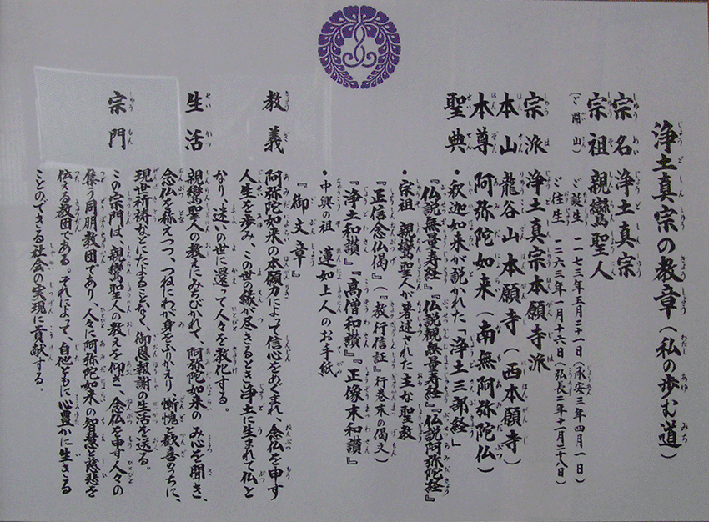 浄土真宗の教章（私の歩む道）
宗名 浄土真宗
宗祖 親鸞聖人
（ご開山） ご誕生 一一七三年五月二十一日（承安三年四月一日）
ご往生 一二六三年一月十六日（弘長二年十一月二十八日）
宗派 浄土真宗本願寺派
本山 龍谷山本願寺（西本願寺）
本尊 阿弥陀如来（南無阿弥陀仏）
聖典 ・釈迦如来が説かれた「浄土三部経」
『仏説無量寿経』『仏説観無量寿経』『仏説阿弥陀経』
・宗祖 親鸞聖人が著述された主な聖教
『正信念仏偈』（『教行信証』行巻末の偈文）
『浄土和讃』『高僧和讃』『正像末和讃』
・中興の祖 蓮如上人のお手紙
『御文章』
教義 阿弥陀如来の本願力によって信心をめぐまれ、念仏を申す
人生を歩み、この世の縁が尽きるとき浄土に生まれて仏と
なり、迷いの世に還って人々を教化する。
生活 親鸞聖人の教えにみちびかれて、阿弥陀如来のみ心を聞き、
念仏を称えつつ、つねにわが身をふりかえり、慚愧と歓喜のうちに、
現世祈祷などにたよることなく、御恩報謝の生活を送る。
宗門 この宗門は、親鸞聖人の教えを仰ぎ、念仏を申す人々の
集う同朋教団であり、人々に阿弥陀如来の智慧と慈悲を
伝える教団である。それによって、自他ともに心豊かに生きる
ことのできる社会の実現に貢献する。